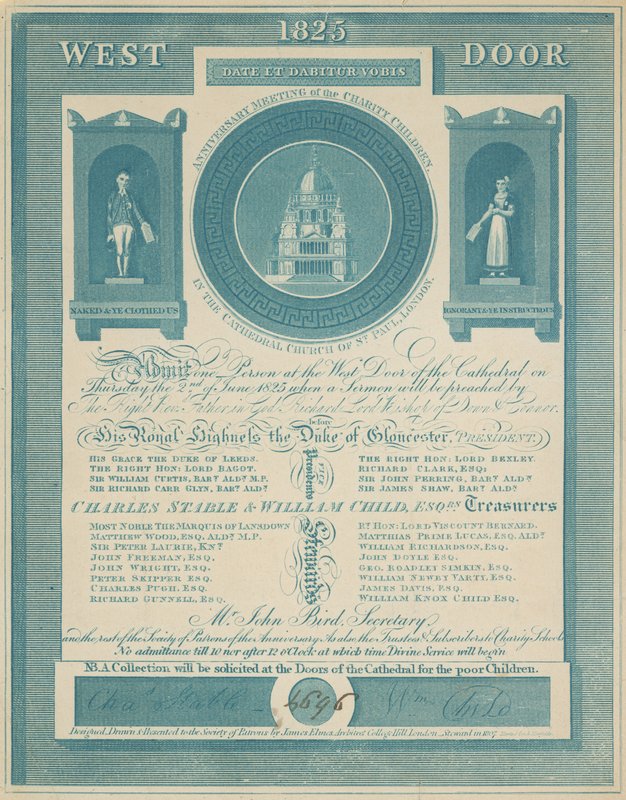 1825
WEST DOOR
DATE ET DABITUR VOBIS
ANNIVERSARY MEETING of the CHARITY CHILDREN,
IN THE CATHEDRAL CHURCH OF ST. PAUL, LONDON.
NAKED & YE CLOTHED US
IGNORANT & YE INSTRUCTED US
Admit one Person at the West Door of the Cathedral on
Thursday the 2nd of June 1825 when a Sermon will be preached by
The Right Revd. Father in God Richard Lord Bishop of Down & Connor.
before
His Royal Highness the Duke of Gloucester, PRESIDENT.
VICE Presidents
HIS GRACE THE DUKE OF LEEDS.
THE RIGHT HON: LORD BAGOT.
SIR WILLIAM CURTIS, BART. ALDN. M.P.
SIR RICHARD CARR GLYN, BART. ALDN.
THE RIGHT HON: LORD BEXLEY.
RICHARD CLARK, ESQ:
SIR JOHN PERRING, BART. ALDN.
SIR JAMES SHAW, BART. ALDN.
CHARLES STABLE & WILLIAM CHILD, ESQRS. Treasurers
Stewards
MOST NOBLE THE MARQUIS OF LANSDOWN
MATTHEW WOOD, ESQ. ALDN. M.P.
SIR PETER LAURIE, KNT.
JOHN FREEMAN, ESQ.
JOHN WRIGHT, ESQ.
PETER SKIPPER ESQ.
CHARLES PUGH, ESQ.
RICHARD GUNNELL, ESQ.
RT. HON: LORD VISCOUNT BERNARD.
MATTHIAS PRIME LUCAS, ESQ. ALDN.
WILLIAM RICHARDSON, ESQ.
JOHN DOYLE ESQ.
GEO. ROADLEY SIMKIN, ESQ.
WILLIAM NEWBY VARTY, ESQ.
JAMES DAVIS, ESQ.
WILLIAM KNOX CHILD ESQ.
Mr. John Bird, Secretary
and the rest of the Society of Patrons of the Anniversary. As also the Trustees & Subscribers to Charity Schools
No admittance till 10 nor after 12 o'Clock at which time Divine Service will begin
NB. A Collection will be solicited at the Doors of the Cathedral for the poor Children.
Chas. Stable 4696 Wm. Child
Designed, Drawn & Presented to the Society of Patrons by James Elmes, Architect, College Hill, London. Steward in 1807.